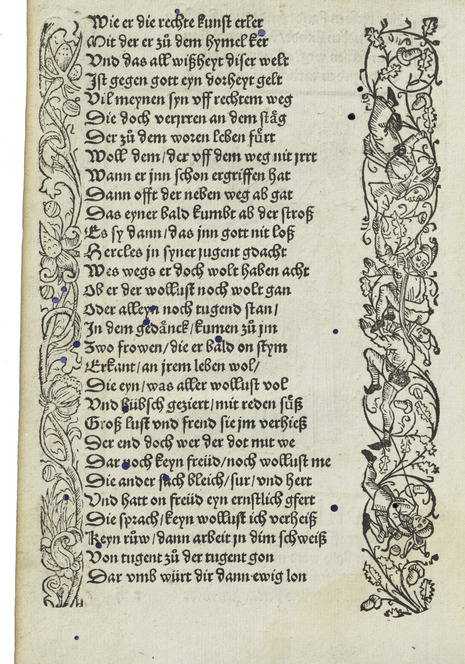 Wie er die rechte kunst erler
Mit der er zů dem hymel ker
Vnd das all wißheyt diser welt
Jst gegen gott eyn dorheyt gelt
Vil meynen syn vff rechtem weg
Die doch verjrren an dem stäg
Der zů dem woren leben fůrt
Woll dem/der vff dem weg nit jrrt
Wann er jnn schon ergriffen hat
Dann offt der neben weg ab gat
Das eyner bald kumbt ab der stroß
Es sy dann/das jnn gott nit loß
Hercles jn syner jugent gdacht
Wes wegs er doch wolt haben acht
Ob er der wollust noch wolt gan
Oder alleyn noch tugend stan/
Jn dem gedänck/kumen zů jm
Zwo frowen/die er bald on stym
Erkant/an jrem leben wol/
Die eyn/was aller wollust vol
Vnd hübsch geziert/mit reden sůß
Groß lust vnd freüd sie jm verhieß
Der end doch wer der dot mit we
Dar noch keyn freüd/noch wollust me
Die ander sach bleich/sur/vnd hert
Vnd hatt on freüd eyn ernstlich gfert
Die sprach/keyn wollust ich verheiß
Keyn růw/dann arbeit jn dim schweiß
Von tugent zů der tugent gon
Dar vmb würt dir dann ewig lon